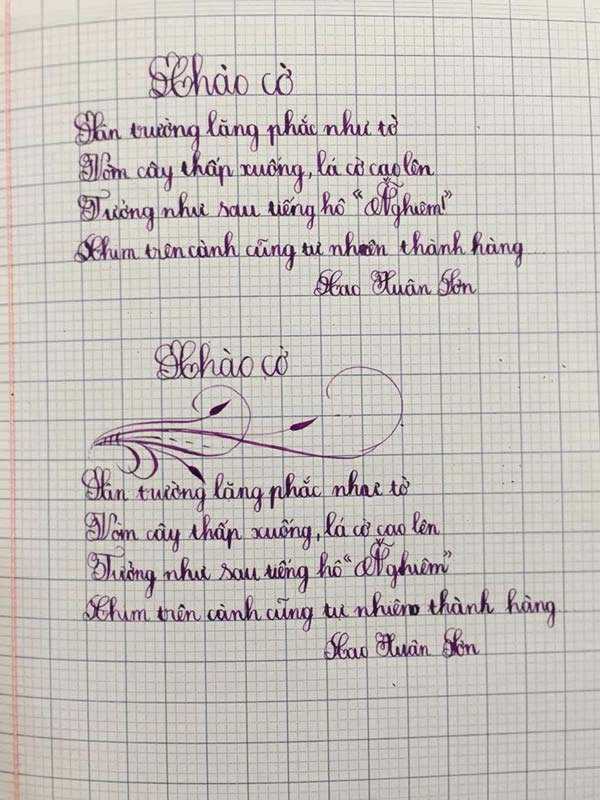 Chào cờ
Sân trường lặng phắc như tờ
Vòm cây thấp xuống, lá cờ cao lên
Tưởng như sau tiếng hô "Nghiêm!"
Chim trên cành cũng tự nhiên thành hàng
Cao Xuân Sơn
Chào cờ
Sân trường lặng phắc như tờ
Vòm cây thấp xuống, lá cờ cao lên
Tưởng như sau tiếng hô "Nghiêm"
Chim trên cành cũng tự nhiên thành hàng
Cao Xuân Sơn